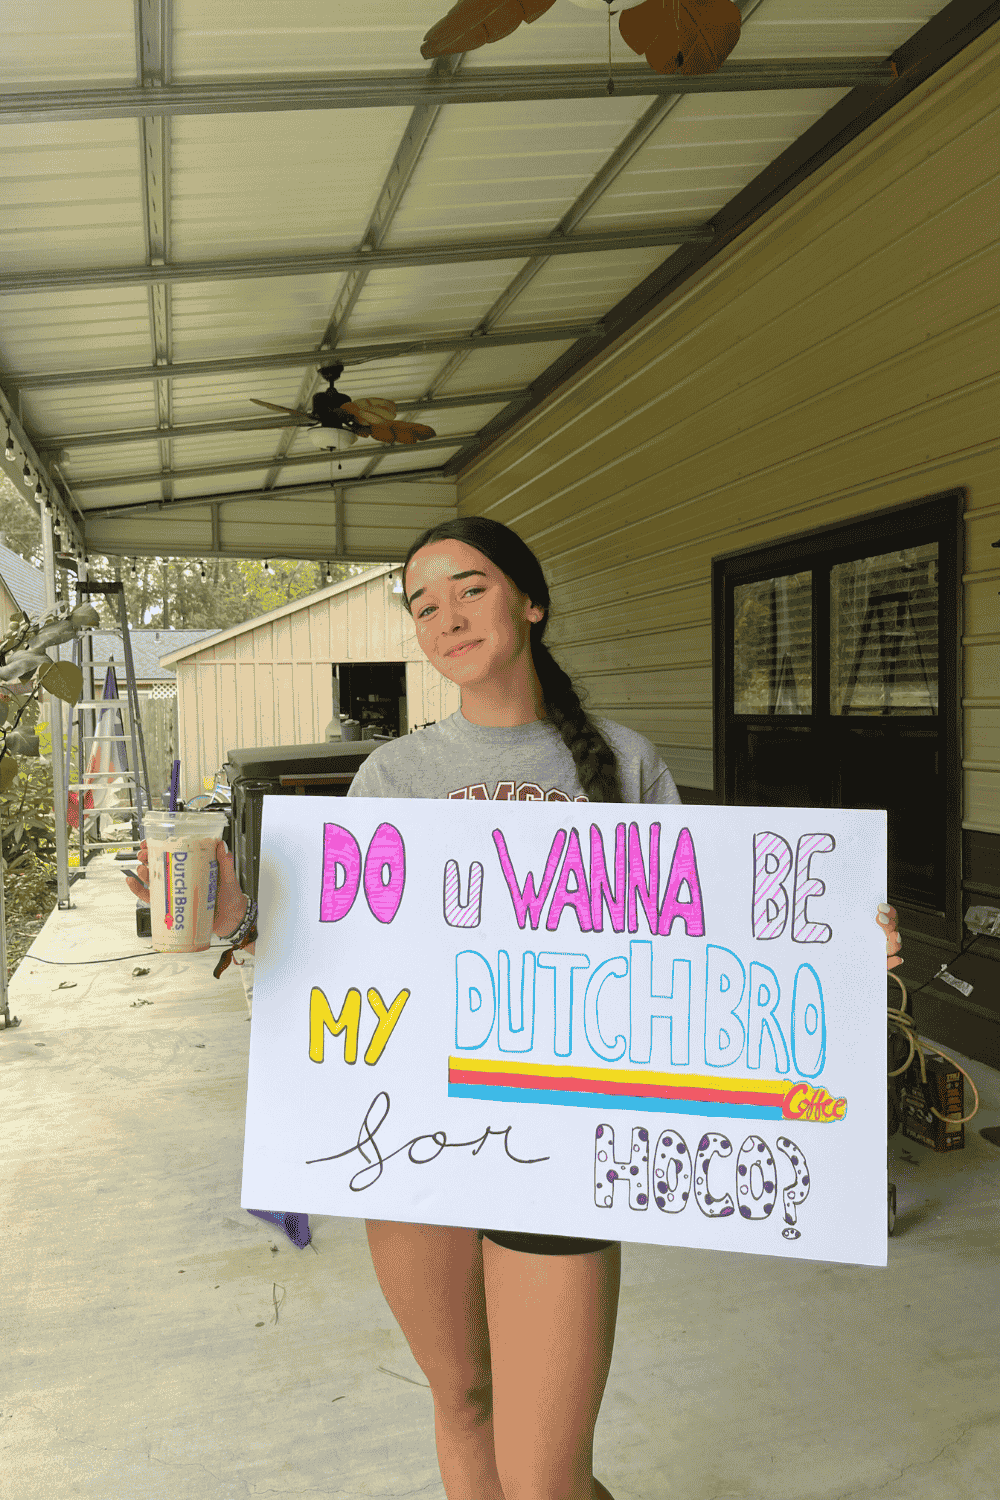 DO U WANNA BE
MY DUTCH BRO
Coffee
for HOCO?
DUTCH BROS